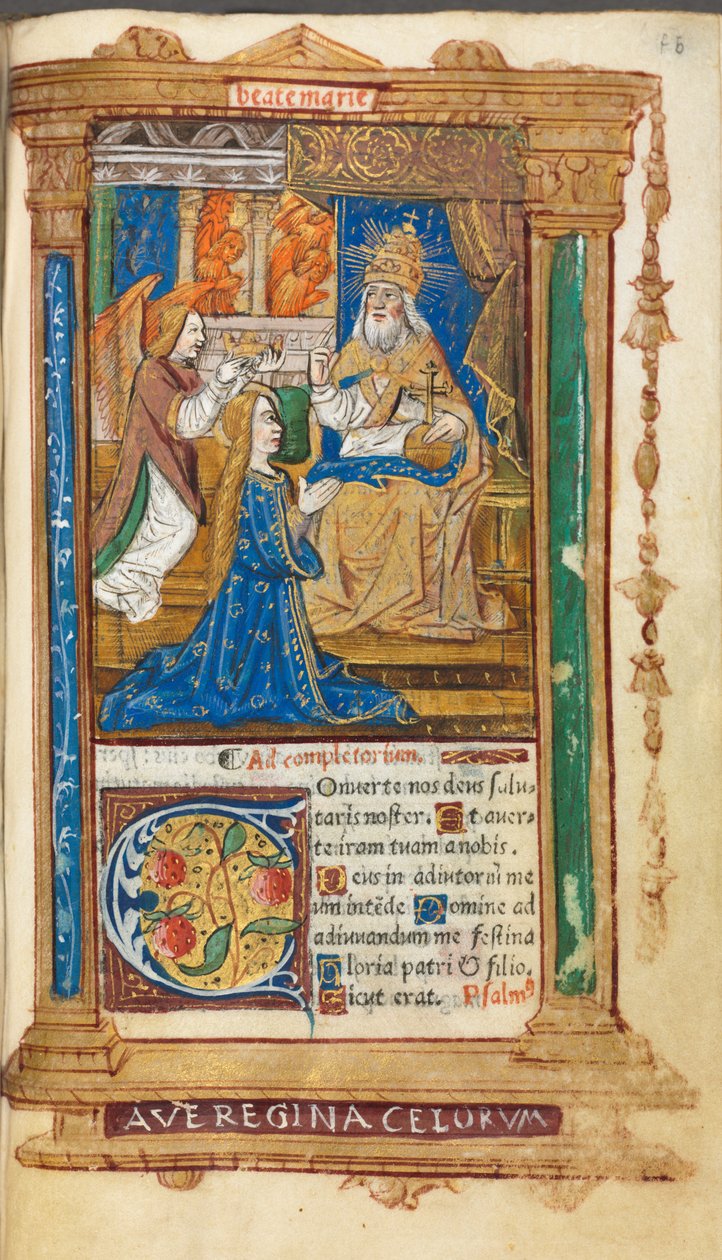 beate marie
Ad completorium.
Conuerte nos deus salu-
taris noster. Et auer-
te iram tuam a nobis.
Deus in adiutoriũ me
um intẽde Domine ad
adiuuandum me festina
Gloria patri & filio.
Sicut erat. Psalmꝰ
AVE REGINA CELORVM